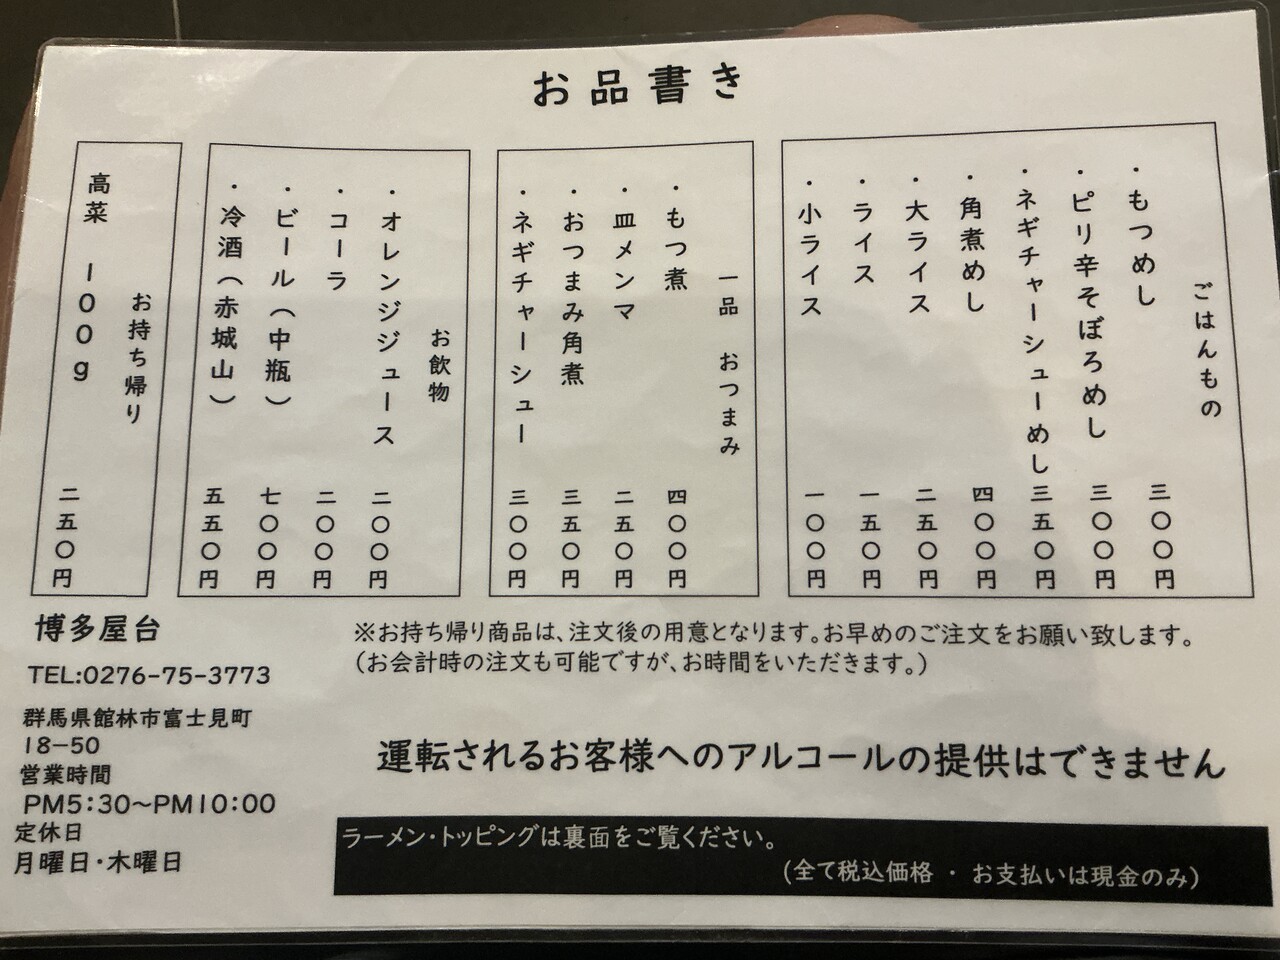 お品書き
ごはんもの
・もつめし 三〇〇円
・ピリ辛そぼろめし 三〇〇円
・ネギチャーシューめし 三五〇円
・角煮めし 四〇〇円
・大ライス 二五〇円
・ライス 一五〇円
・小ライス 一〇〇円
一品 おつまみ
・もつ煮 四〇〇円
・皿メンマ 二五〇円
・おつまみ角煮 三五〇円
・ネギチャーシュー 三〇〇円
お飲物
・オレンジジュース 二〇〇円
・コーラ 二〇〇円
・ビール（中瓶） 七〇〇円
・冷酒（赤城山） 五五〇円
お持ち帰り
高菜 100g 二五〇円
博多屋台
TEL:0276-75-3773
群馬県館林市富士見町
18−50
営業時間
PM5:30～PM10:00
定休日
月曜日・木曜日
※お持ち帰り商品は、注文後の用意となります。お早めのご注文をお願い致します。
（お会計時の注文も可能ですが、お時間をいただきます。）
運転されるお客様へのアルコールの提供はできません
ラーメン・トッピングは裏面をご覧ください。
(全て税込価格 ・ お支払いは現金のみ)